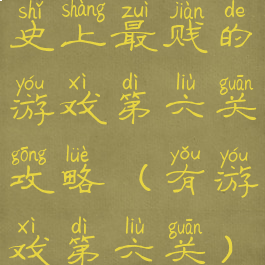 shǐ shàng zuì jiàn de
史上最贱的
yóu xì dì liù guān
游戏第六关
gōng lüè yǒu yóu
攻略（有游
xì dì liù guān
戏第六关）